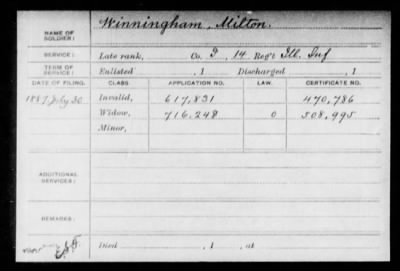 NAME OF SOLDIER: Winningham, Milton.
SERVICE: Late rank, Co. I, 14 Reg't Ill. Inf
TERM OF SERVICE: Enlisted , 1 Discharged , 1
DATE OF FILING. CLASS APPLICATION NO. LAW. CERTIFICATE NO.
1887, July 30 Invalid, 617,831 470,786
Widow, 716,248 0 508,995
Minor,
ADDITIONAL SERVICES:
REMARKS:
Died , 1 , at